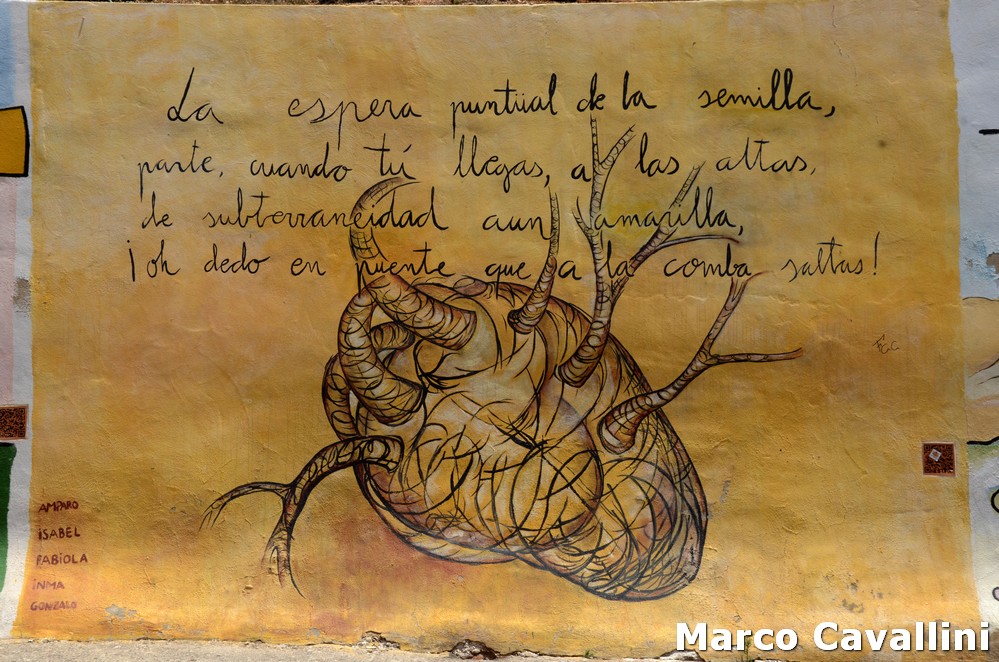 La espera puntüal de la semilla,
parte, cuando tú llegas, a las altas,
de subterraneidad aun amarilla,
¡oh dedo en puente que a la comba saltas!
AMPARO
ISABEL
FABIOLA
INMA
GONZALO
Marco Cavallini